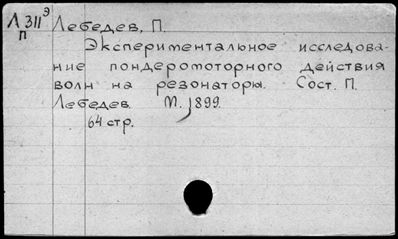 Л 311 э
п
Лебедев, П.
Экспериментальное исследова-
ние пондеромоторного действия
волн на резонаторы. Сост. П.
Лебедев. М. 1899.
64 стр.